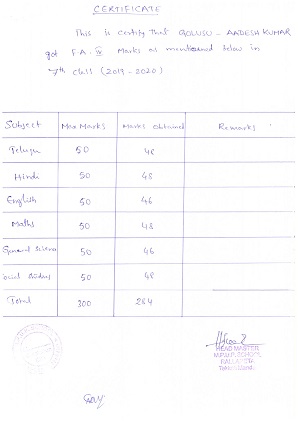 CERTIFICATE
This is certify that GOLUSU - AADESH KUMAR
got F.A - IV Marks as mentioned below in
7th class (2019 - 2020)
Subject Max Marks Marks Obtained Remarks
Telugu 50 46
Hindi 50 48
English 50 46
Maths 50 48
General Science 50 46
Social Studies 50 48
Total 300 284
HEAD MASTER
M.P.U.P. SCHOOL